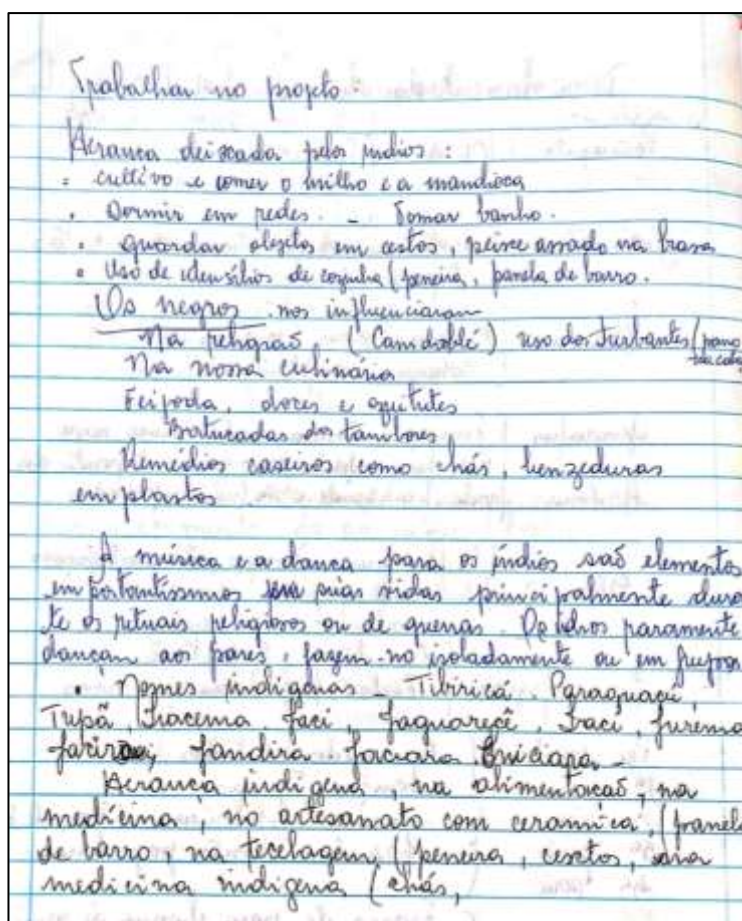 Trabalhar no projeto:
Herança deixada pelos índios:
. cultivo e comer o milho e a mandioca
. Dormir em redes. - Tomar banho.
. guardar objetos em cestos, peixe assado na brasa
. Uso de utensílios de cozinha (peneira, panela de barro.
Os negros nos influenciaram
Na religião, (Camdoblé) uso dos turbantes (pano
Na nossa culinária
Feijoda, doces e quitutes
Batucadas dos tambores
Remédios caseiros como chás, benzeduras
emplastos.
A música e a dança para os índios saõ elementos
emportantíssimos suas vidas principalmente duran
te os rituais religiosos ou de guerras. Os índios raramente
dançam aos pares, fazem-no isoladamente ou em grupos
. Nomes indígenas - Tibiriçá. Paraguaçú,
Tupã, Iracema, Jaci, Jaguarecê, Iraci, Jurema
Jandira Jaciara
Herança indígena, na alimentacaõ, na
medicina, no artesanato com ceramica, (panela
de barro, na tecelagem, (peneira, cestos,
medicina indígena (chás,